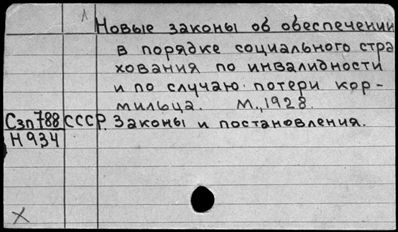 1
Новые законы об обеспечении
в порядке социального стра
хования по инвалидности
и по случаю потери кор-
мильца. М., 1928.
Сзп788 СССР. Законы и постановления.
Н934
X